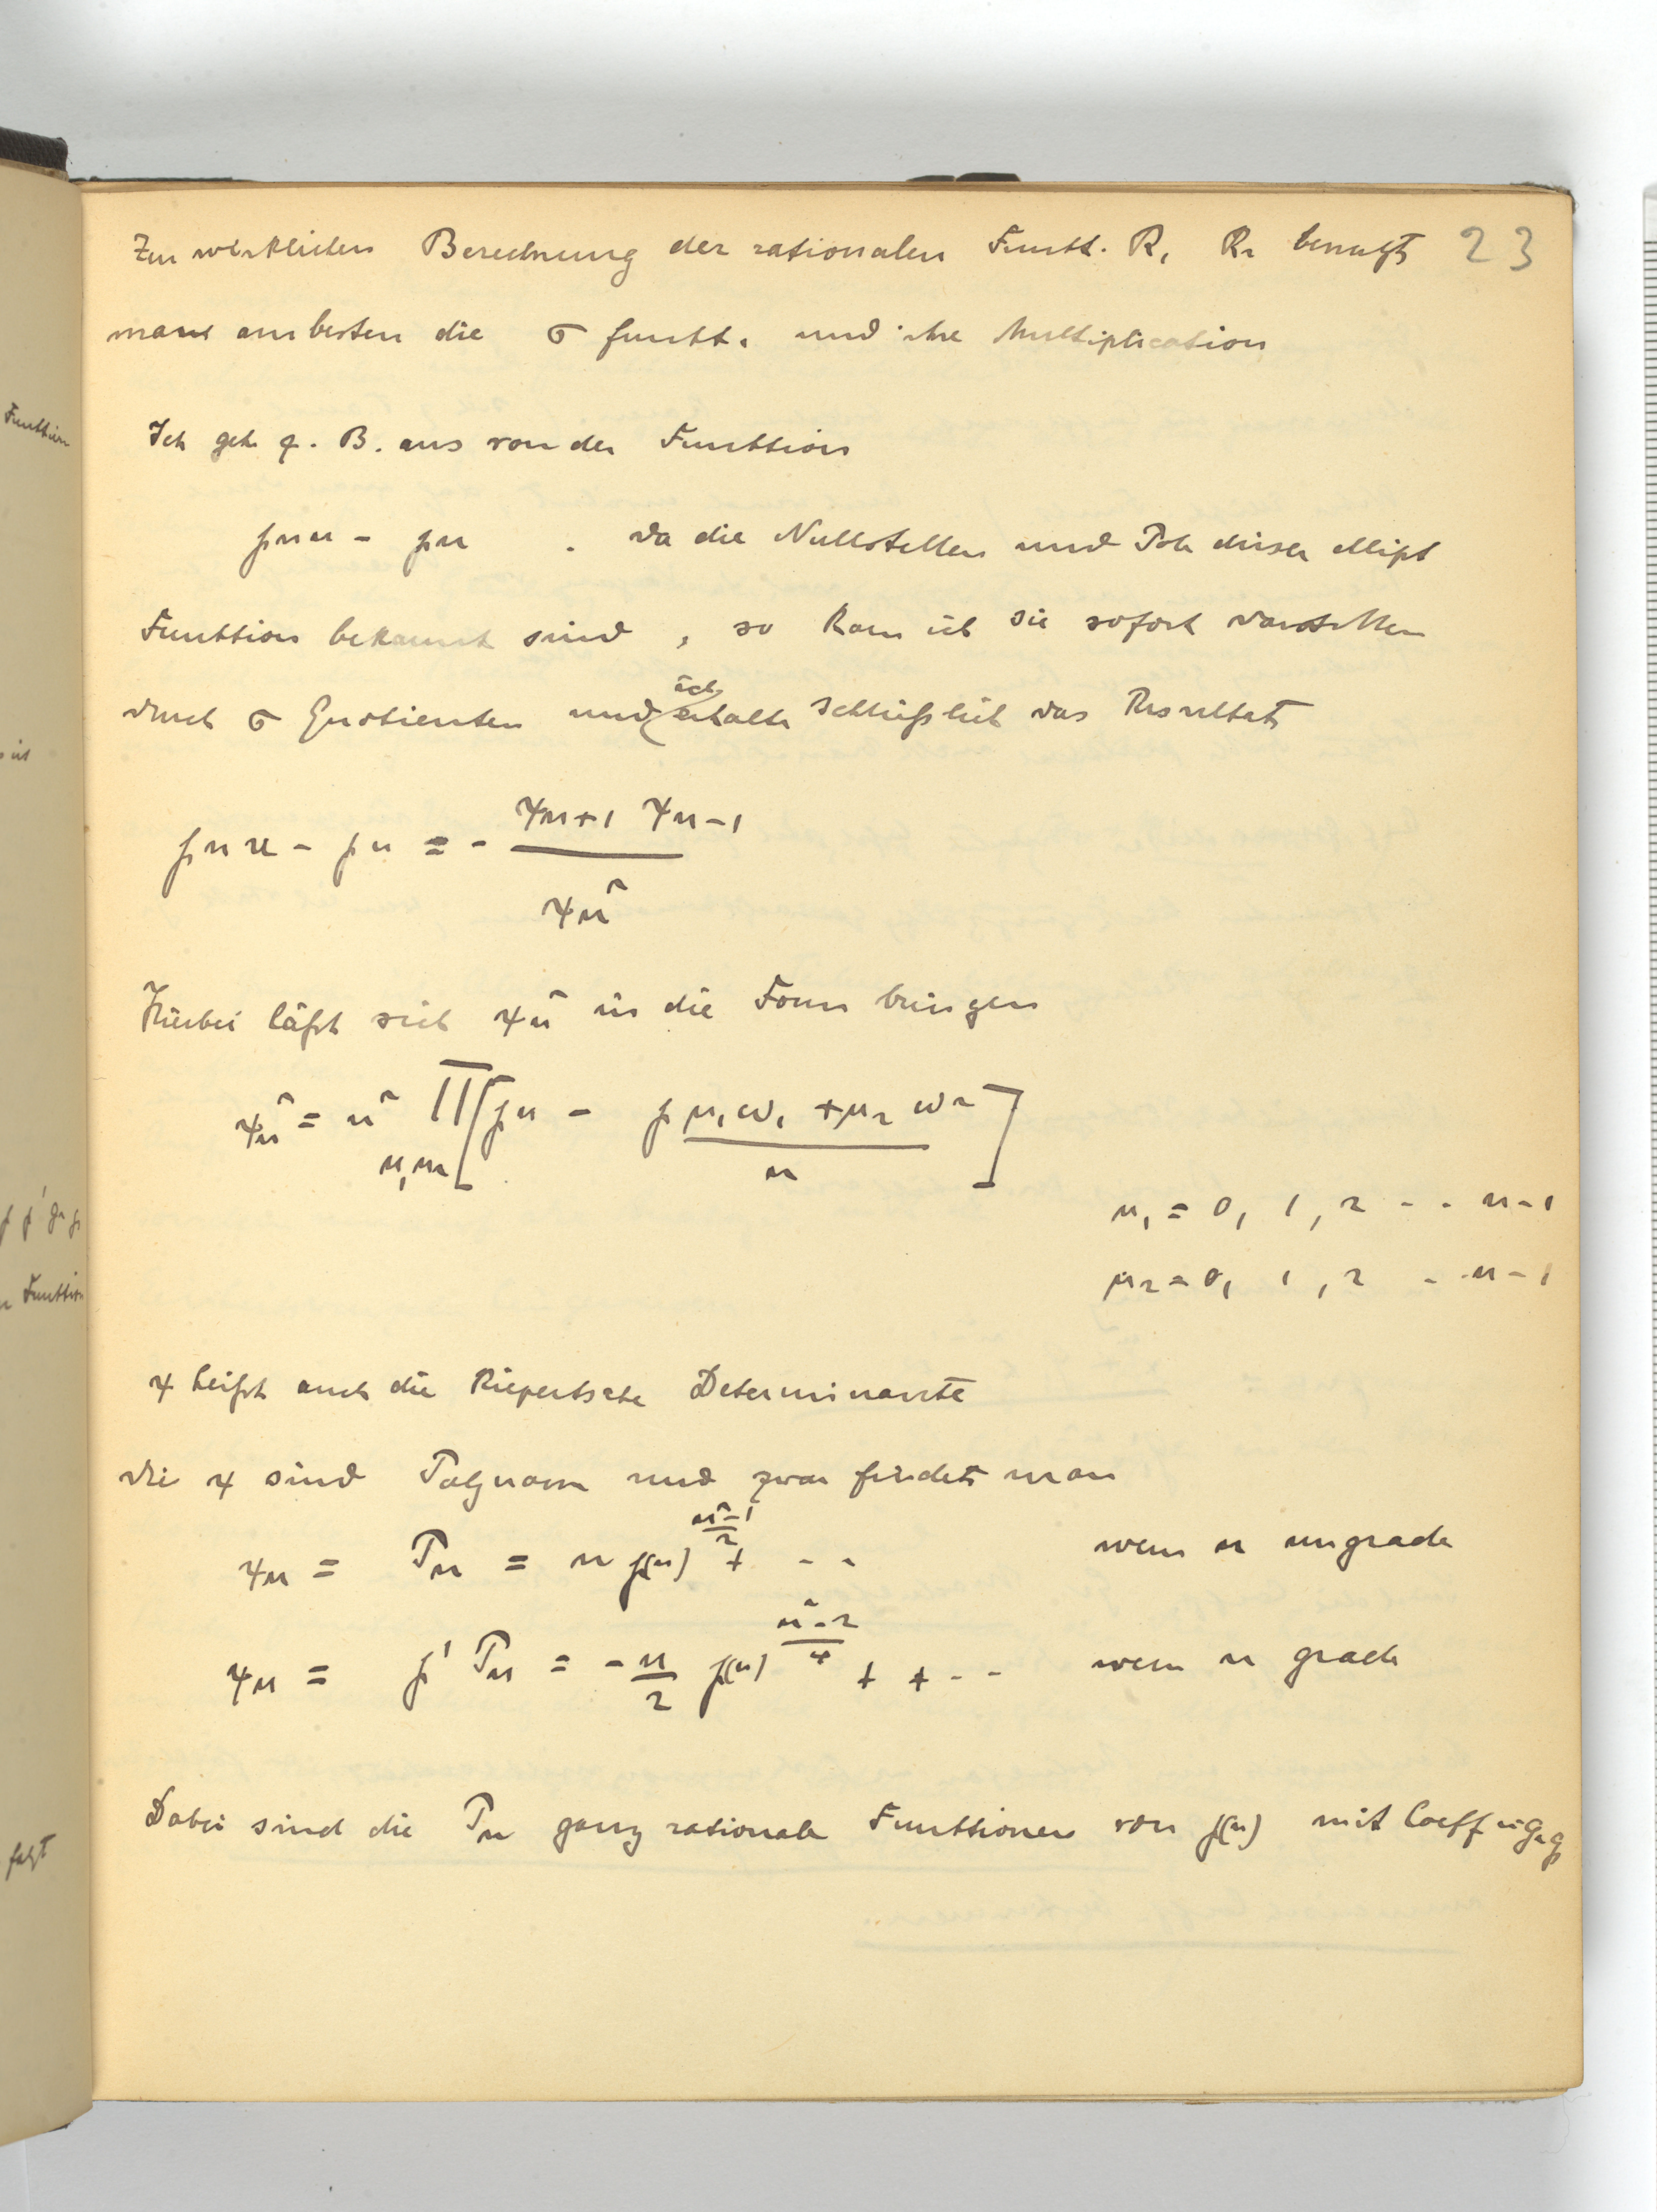 Zur wirklichen Berechnung der rationalen Funkt. R₁ R₂ benutzt 23
man am besten die σ funkt. und ihre Multiplication
Ich gehe z. B. aus von der Funktion
℘nu - ℘u . da die Nullstellen und Pole dieser ellipt
Funktion bekannt sind, so kann ich sie sofort darstellen
durch σ Quotienten und erhalte ich schließlich das Resultat
℘nu - ℘u = - ψn+1 ψn-1 / ψn²
Hierbei läßt sich ψn² in die Form bringen
ψn² = n² ∏ [℘u - ℘ (μ₁ω₁ + μ₂ω₂)/n]
μ₁ = 0, 1, 2 - - n-1
μ₂ = 0, 1, 2 - - n-1
ψ heißt auch die Kiepertsche Determinante
die ψ sind Polynom und zwar findet man
ψn = Pn = n ℘(u)^((n²-1)/2) + - - wenn n ungrade
ψn = ℘' Pn = - n/2 ℘(u)^((n²-2)/4) + + - - wenn n grade
Dabei sind die Pn ganz rationale Funktionen von ℘(u) mit Coeff in g₂ g₃
Funktion
Funktion
folgt